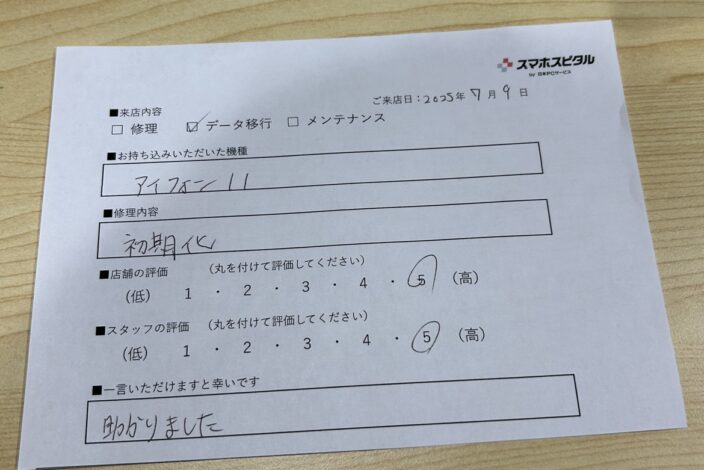 スマホスピタル
by 日本PCサービス
ご来店日：2025年 7月 9日
■来店内容
□ 修理 ☑ データ移行 □ メンテナンス
■お持ち込みいただいた機種
アイフォーン11
■修理内容
初期化
■店舗の評価 （丸を付けて評価してください）
（低） 1 ・ 2 ・ 3 ・ 4 ・ 5 （高）
■スタッフの評価 （丸を付けて評価してください）
（低） 1 ・ 2 ・ 3 ・ 4 ・ 5 （高）
■一言いただけますと幸いです
助かりました